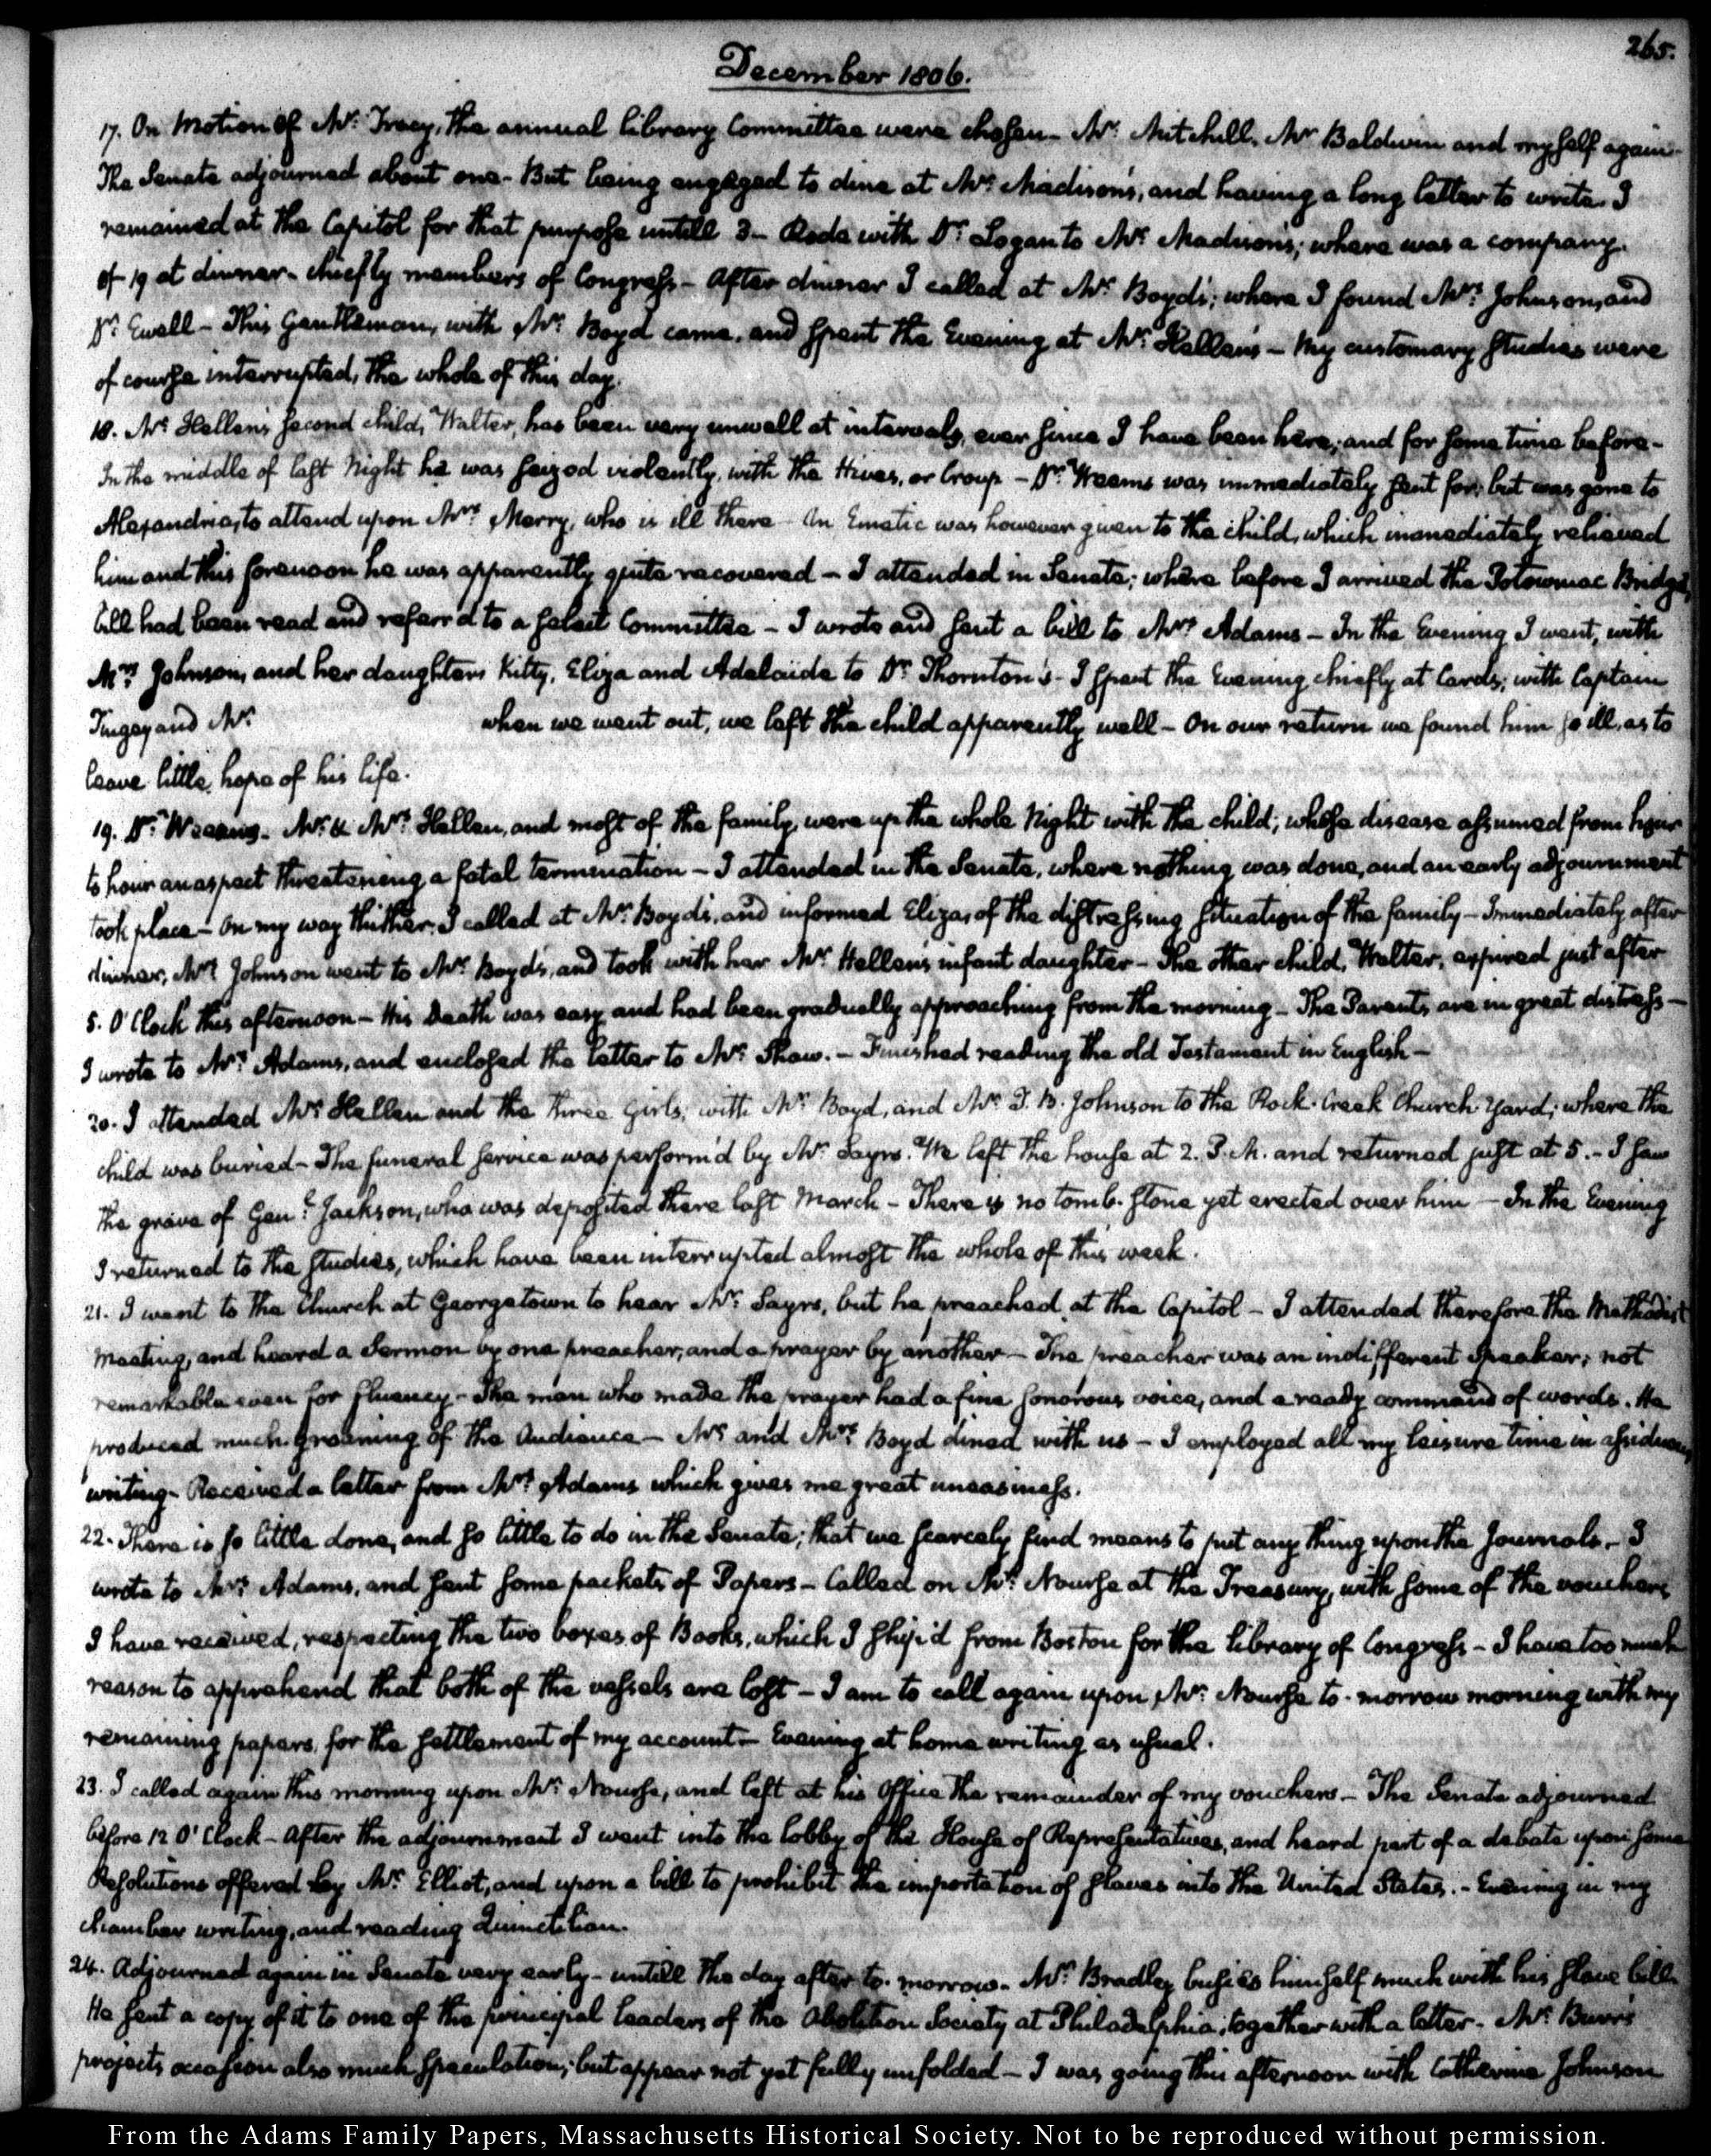 265.
December 1806.
17. On Motion of Mr. Tracy, the annual library Committee were chosen - Mr. Mitchill, Mr Baldwin and myself again -
The Senate adjourned about one - But being engaged to dine at Mr. Madison's, and having a long letter to write I
remained at the Capitol for that purpose untill 3 - Rode with Dr. Logan to Mr. Madison's; where was a company
of 19 at dinner - chiefly members of Congress - After dinner I called at Mr. Boyd's; where I found Mrs. Johnson, and
Dr. Ewell - This Gentleman, with Mr. Boyd came, and spent the Evening at Mr. Hellen's - My customary studies were
of course interrupted, the whole of this day.
18. Mr. Hellen's second child, Walter, has been very unwell at intervals, ever since I have been here; and for some time before -
In the middle of last Night he was seized violently, with the Hives, or Croup - Dr. Weems was immediately sent for; but was gone to
Alexandria, to attend upon Mrs. Merry, who is ill there - An Emetic was however given to the child, which immediately relieved
him and this forenoon he was apparently quite recovered - I attended in Senate; where before I arrived the Potowmac Bridge,
bill had been read and referr'd to a select Committee - I wrote and sent a bill to Mrs. Adams - In the Evening I went, with
Mrs. Johnson, and her daughters Kitty, Eliza and Adelaide to Dr. Thornton's - I spent the Evening chiefly at Cards; with Captain
Tingey and Mr. when we went out, we left the child apparently well - On our return we found him so ill, as to
leave little hope of his life.
19. Dr. Weems - Mr. & Mrs. Hellen, and most of the family, were up the whole Night with the child; whose disease assumed from hour
to hour an aspect threatening a fatal termination - I attended in the Senate, where nothing was done, and an early adjournment
took place - On my way thither, I called at Mr. Boyd's, and informed Eliza, of the distressing situation of the family - Immediately after
dinner, Mrs. Johnson went to Mr. Boyd's, and took with her Mr. Hellen's infant daughter - The other child, Walter, expired just after
5. O'Clock this afternoon - His Death was easy and had been gradually approaching from the morning - The Parents are in great distress -
I wrote to Mrs. Adams, and enclosed the letter to Mr. Shaw. - Finished reading the old Testament in English -
20. I attended Mr. Hellen and the three girls, with Mr. Boyd, and Mr. T. B. Johnson to the Rock-Creek Church-Yard; where the
child was buried - The funeral service was perform'd by Mr. Sayrs. We left the house at 2. P.M. and returned just at 5. - I saw
the grave of Genl. Jackson, who was deposited there last March - There is no tomb-stone yet erected over him - In the Evening
I returned to the studies, which have been interrupted almost the whole of this week.
21. I went to the Church at Georgetown to hear Mr. Sayrs, but he preached at the Capitol - I attended therefore the Methodist
Meeting, and heard a Sermon by one preacher, and a prayer by another - The preacher was an indifferent speaker; not
remarkable even for fluency - The man who made the prayer had a fine sonorous voice, and a ready command of words. He
produced much groaning of the Audience - Mr. and Mrs. Boyd dined with us - I employed all my leisure time in assiduous
writing - Received a letter from Mrs. Adams which gives me great uneasiness.
22. There is so little done, and so little to do in the Senate; that we scarcely find means to put any thing upon the Journals. - I
wrote to Mrs. Adams, and sent some packets of Papers - Called on Mr. Nourse at the Treasury, with some of the vouchers
I have received, respecting the two boxes of Books, which I ship'd from Boston for the library of Congress - I have too much
reason to apprehend that both of the vessels are lost - I am to call again upon Mr. Nourse to-morrow morning with my
remaining papers, for the settlement of my account - Evening at home writing as usual.
23. I called again this morning upon Mr. Nourse, and left at his Office the remainder of my vouchers. - The Senate adjourned
before 12 O'Clock - After the adjournment I went into the lobby of the House of Representatives, and heard part of a debate upon some
Resolutions offered by Mr. Elliot, and upon a bill to prohibit the importation of slaves into the United States. - Evening in my
chamber writing, and reading Quinctilian.
24. Adjourned again in Senate very early - untill the day after to-morrow. Mr. Bradley busies himself much with his slave bill.
He sent a copy of it to one of the principal leaders of the Abolition Society at Philadelphia; together with a letter. Mr. Burr's
projects occasion also much speculation; but appear not yet fully unfolded - I was going this afternoon with Catherine Johnson
From the Adams Family Papers, Massachusetts Historical Society. Not to be reproduced without permission.